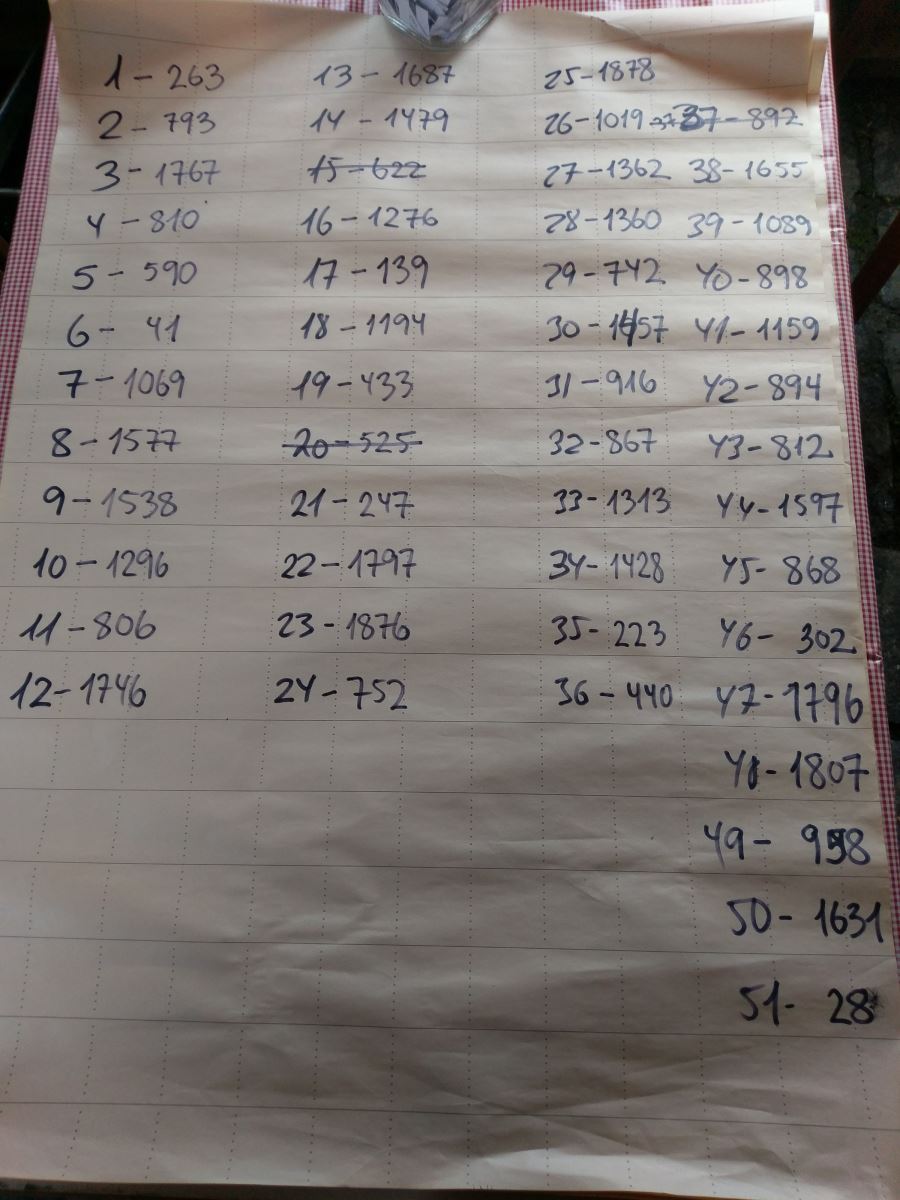 1 - 263
2 - 793
3 - 1767
4 - 810
5 - 590
6 - 41
7 - 1069
8 - 1577
9 - 1538
10 - 1296
11 - 806
12 - 1746
13 - 1687
14 - 1479
15 - 622
16 - 1276
17 - 139
18 - 1194
19 - 433
20 - 525
21 - 247
22 - 1797
23 - 1876
24 - 752
25 - 1878
26 - 1019
27 - 1362
28 - 1360
29 - 742
30 - 1457
31 - 916
32 - 867
33 - 1313
34 - 1428
35 - 223
36 - 440
37 - 892
38 - 1655
39 - 1089
40 - 898
41 - 1159
42 - 894
43 - 812
44 - 1597
45 - 868
46 - 302
47 - 1796
48 - 1807
49 -
50 - 1631
51 - 28